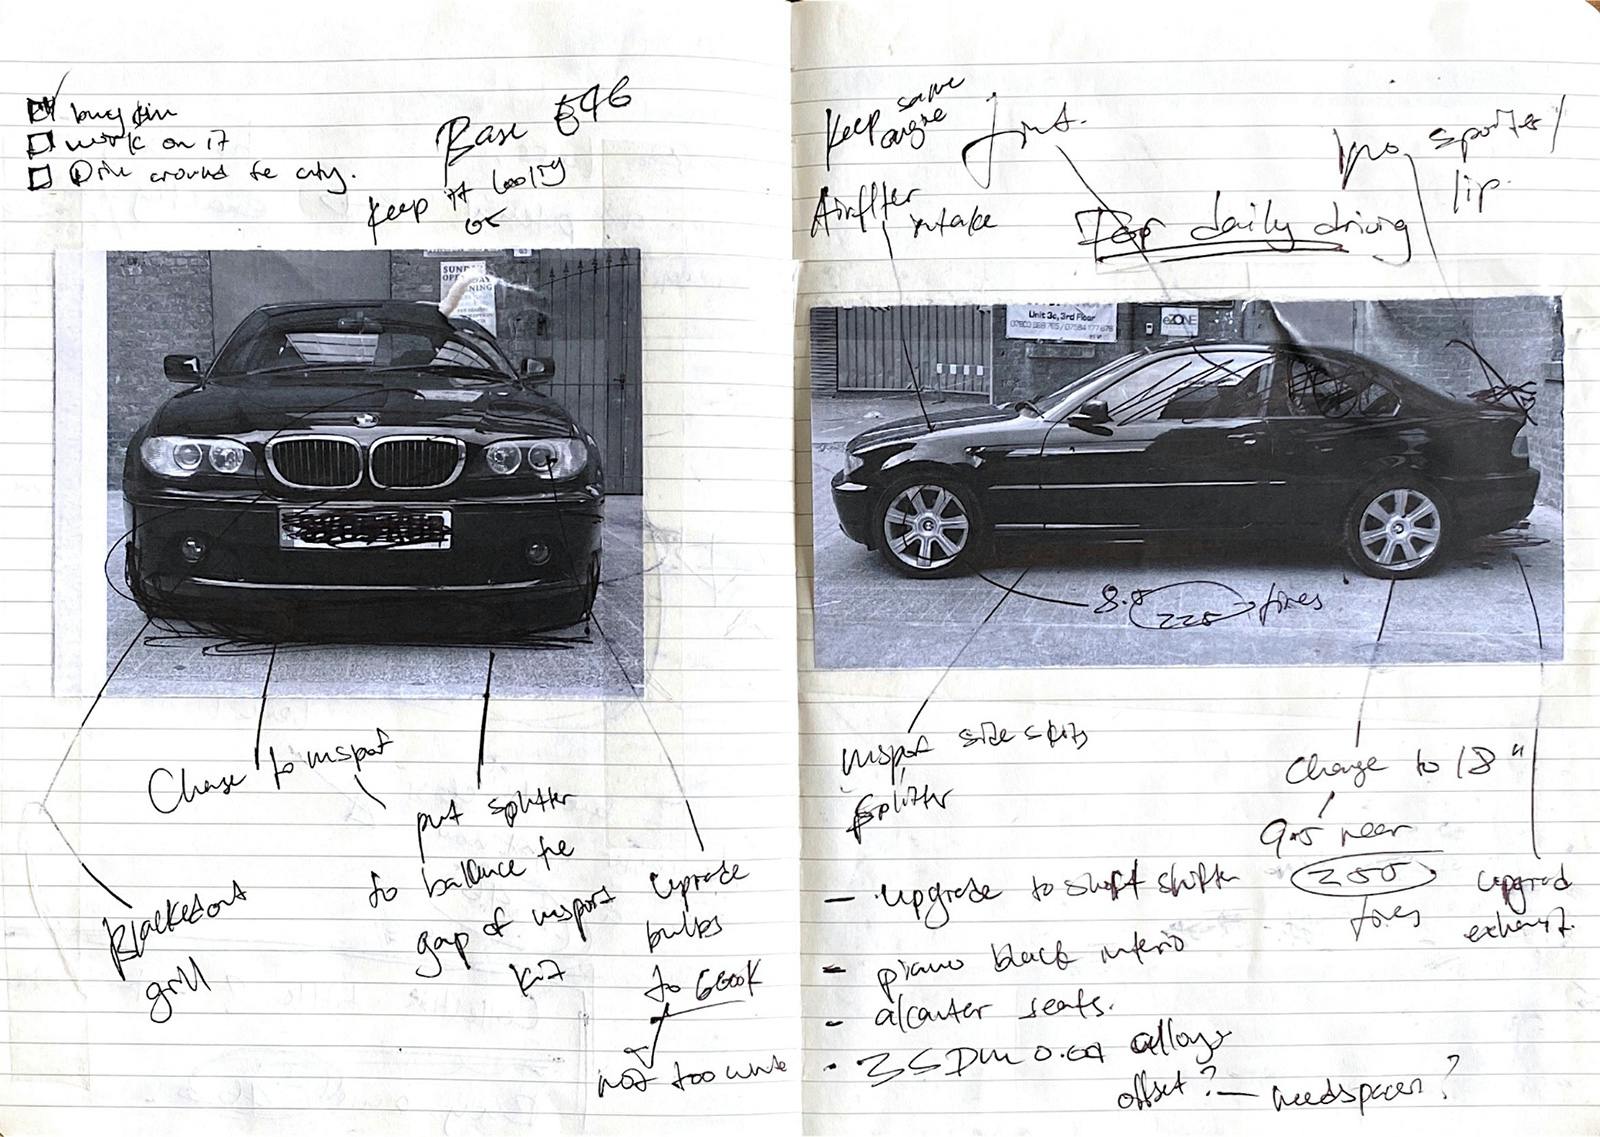 buy
work on it
Drive around the city.
Base E46
keep it looking
OE
SUNDAY
Change to msport
put splitter
to ballance the
gap of msport
kit
Upgrade
bulbs
to 6600K
not too white
Blackedout
grill
keep same
engine
Airfilter
intake
tint.
For daily driving
sporter/
lip.
Unit 3c, 3rd Floor
eZONE
8.5
225
tires
msport side skirts
splitter
Change to 18"
9.5 rear
255
tires
upgrad
exhaust.
- upgrade to short shifter
- piano black interio
- alcanter seats.
- 3SDM 0.01 alloys
offset? — need spacer?